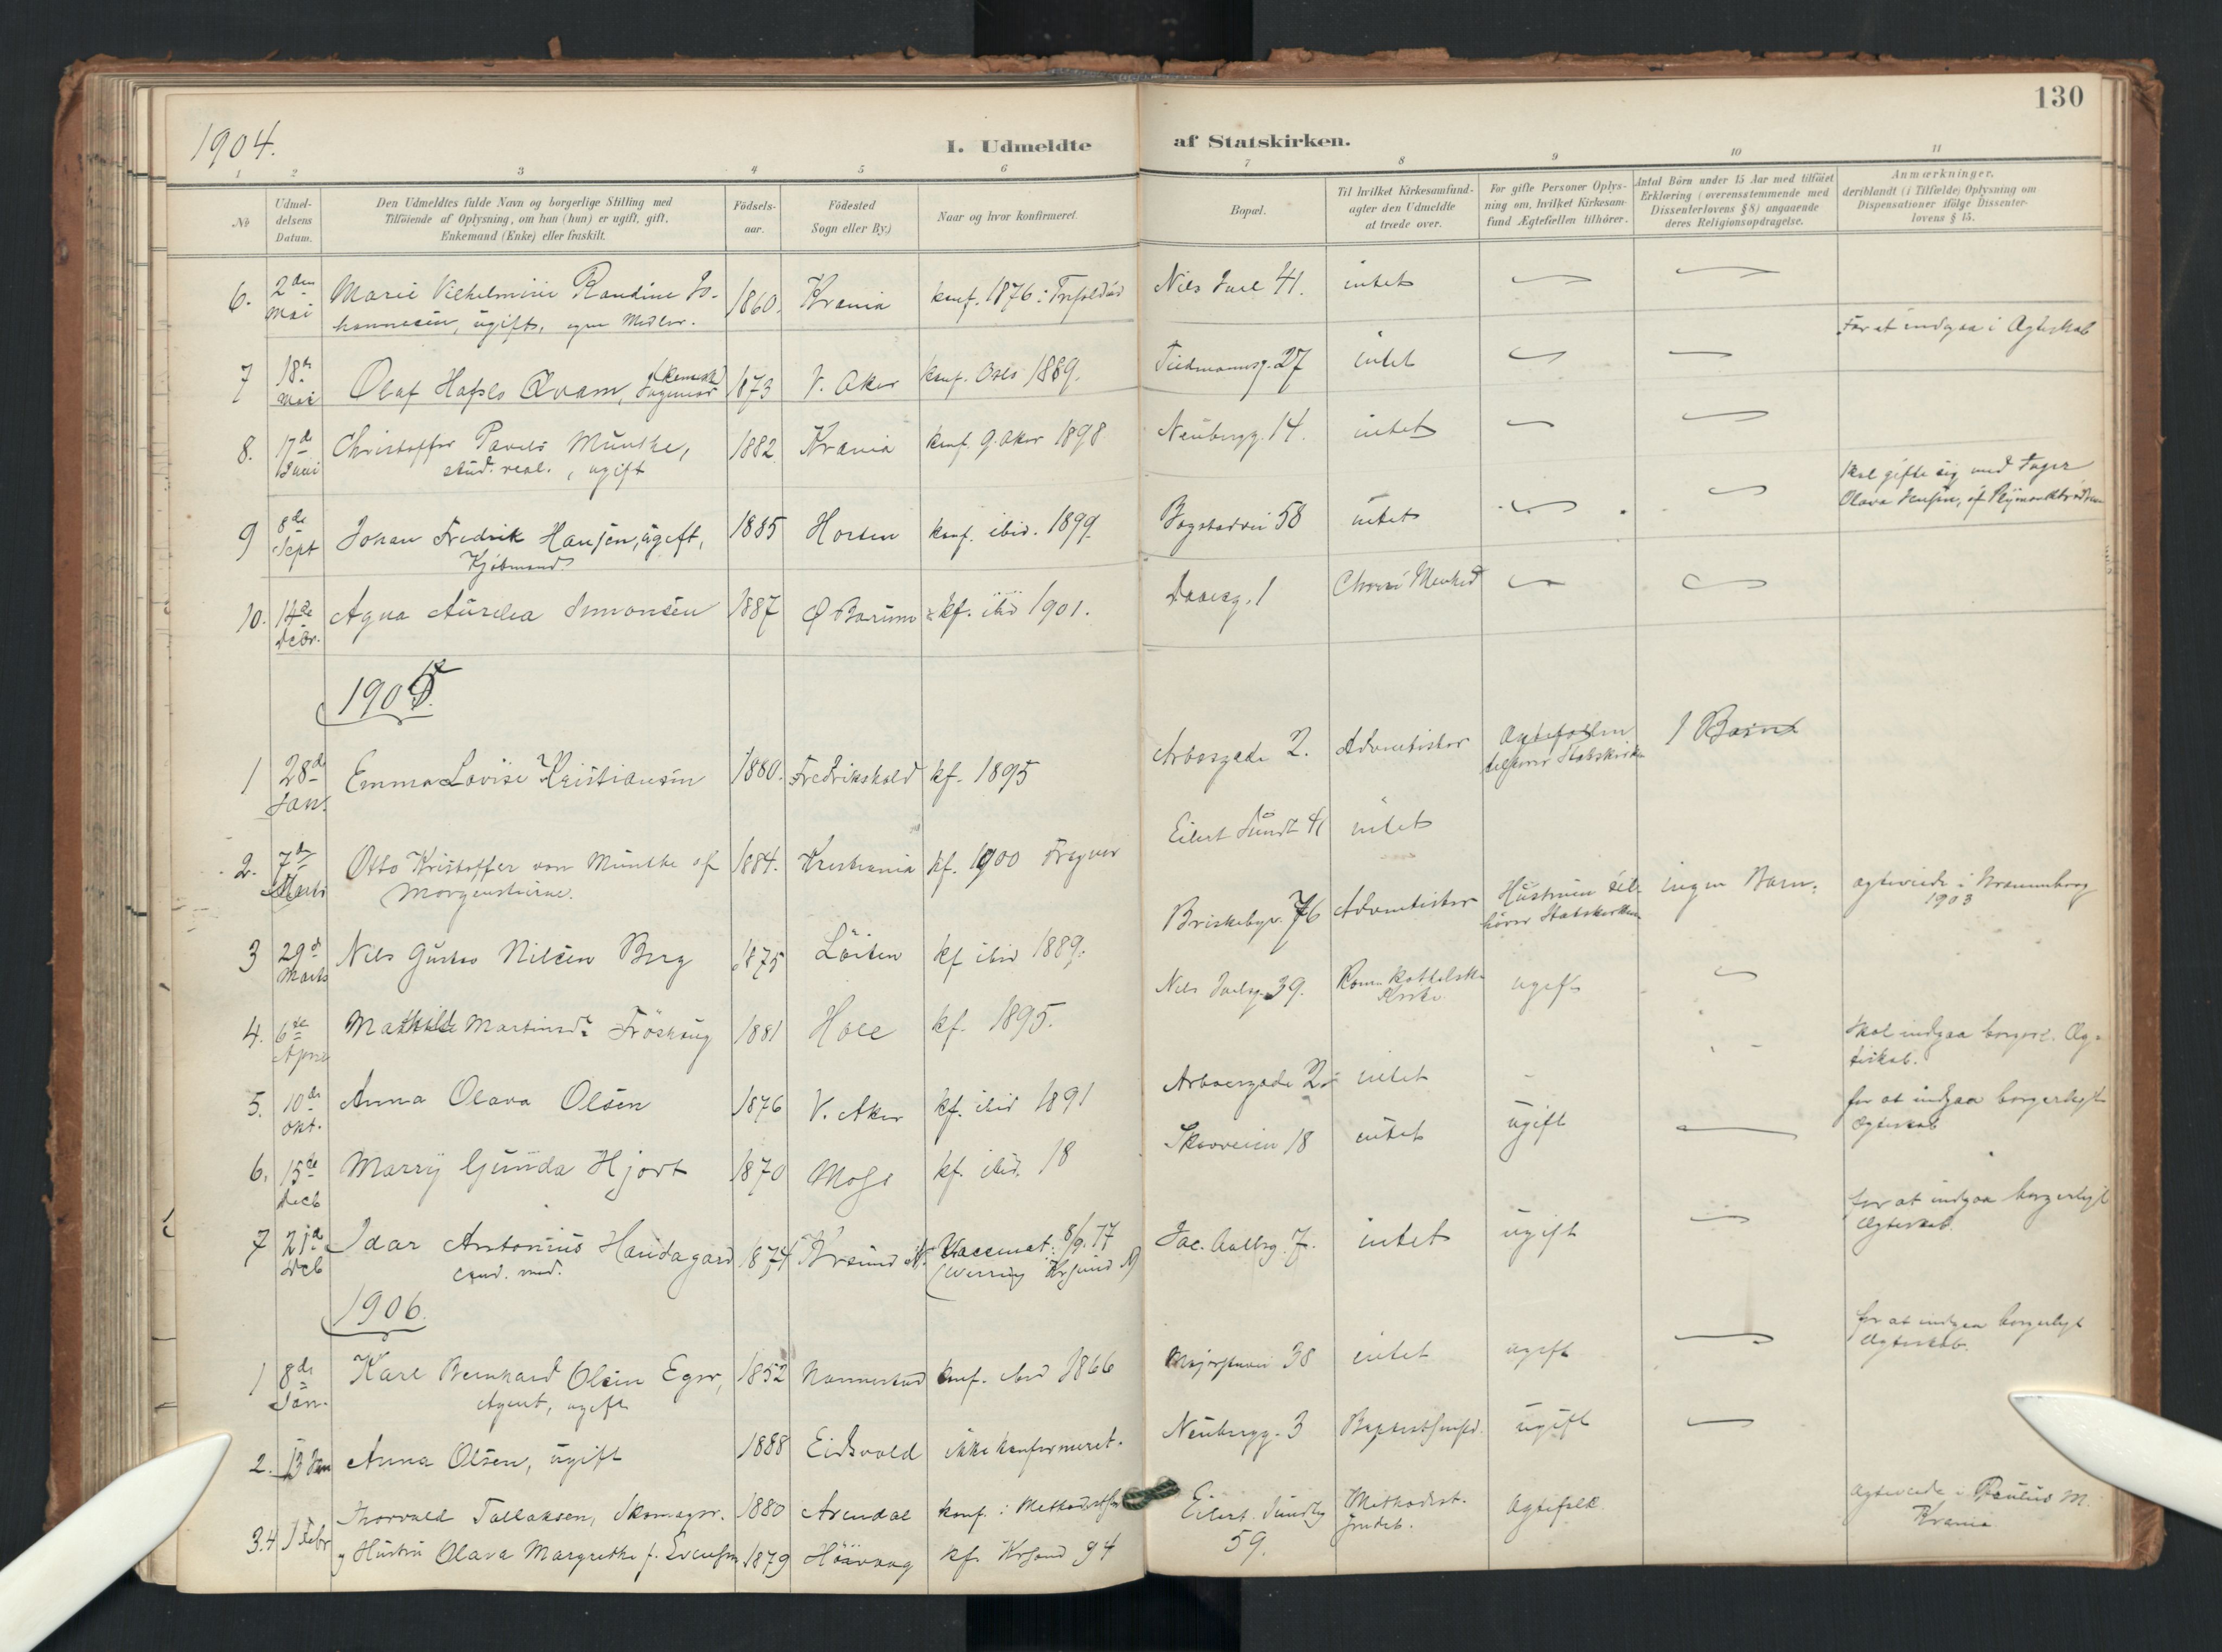 130
1904.
I. Udmeldte af Statskirken.
1 2 3 4 5 6 7 8 9 10 11
No
Udmel-
delsens
Datum.
Den Udmeldtes fulde Navn og borgerlige Stilling med
Tilföiende af Oplysning, om han (hun) er ugift, gift,
Enkemand (Enke) eller fraskilt.
Födsels-
aar.
Födested
Sogn eller By.)
Naar og hvor konfirmeret.
Bopæl.
Til hvilket Kirkesamfund
agter den Udmeldte
at træde over.
For gifte Personer Oplys-
ning om, hvilket Kirkesam-
fund Ægtefællen tilhörer.
Antal Börn under 15 Aar med tilföiet
Erklæring (overensstemmende med
Dissenterlovens § 8) angaaende
deres Religionsopdragelse.
Anmærkninger,
deriblandt (i Tilfælde) Oplysning om
Dispensationer ifölge Dissenter-
lovens § 15.
6. 2den Mai Marie Vilhelmine Randine Jo- 1860. Krania konf. 1876 i Trefoldigh Nils Juel 41. intet
hannesen, ugift, egne Midler.
7 18de Mai Olaf Hafslo Qvam, (kemisk) Ingeniør 1873 V. Aker konf. Oslo 1889. Tidemannsg. 27 intet For at indgaa i Ægteskab
8. 17de Juni Christoffer Pavels Münthe, 1882 Krania konf. G. Aker 1898 Neubergg. 14. intet
stud. real., ugift
9 8de Sept Johan Fredrik Hansen, ugift, 1885 Horten konf. ibid. 1899. Bogstadvei 58 intet Skal gifte sig med
Kjøbmand Olava
10. 14de Decbr. Agna Aurelia Simonsen 1887 Ø Bærum kf. ibid 1901. Daasg. 1
1905.
1 28de Jan. Emma Lovise Kristiansen 1880. Fredrikshald kf. 1895 Arboesgade 2. Adventister Ægtefællen 1 Barn
tilhører Statskirken
2. 7de Marts Otto Kristoffer von Münthe af 1884. Kristiania kf. 1900 Frogner Eilert Sundt 41 intet
Morgenstierne.
3 29de Marts Nils Gustav Nilsen Berg 1875 Löiten kf ibid 1889. Briskebyv. 76 Adventister Hustruen til- ingen Barn. ægteviede i
hører Statskirken 1903
4. 6te April Mathilde Martinsdr Fröshaug 1881 Hole kf. 1895. Nils Juelsg. 39. Rom. katholske ugift
Kirke
5. 10de Okt. Anna Olava Olsen 1876 V. Aker kf. ibid 1891 Arboesgade 2 intet Skal indgaa borgerl. Æg-
teskab.
6. 15de Decb Marry Gunda Hjort 1870 Moss kf. ibid. 18 Skovveien 18 intet ugift for at indgaa borgerligt
Ægteskab
7 21de Decb Idar Antonius Handagard 1874 Krsund N. Vaccinat: 8/9. 77 Jac. Aallsg. 7. intet ugift for at indgaa borgerligt
cand. med. Krsund N) Ægteskab.
1906.
1 8de Jan. Karl Bernhard Olsen Eger, 1852 Nannestad konf. ibid 1866 38 intet ugift for at indgaa borgerligt
Agent, ugift Ægteskab.
2. 13 Jan Anna Olsen, ugift 1888 Eidsvold ikke konfirmeret. Neubergg. 3 ugift
3.4 1 Febr Thorvald Tallaksen, Skomager. 1880 Arendal konf. i Eilert Sundtsg Methodist- Ægtefolk. ægteviede i Paulus M.
59. Krania
og Hustru Olava Margrethe f. Svensen 1879 Høivaag kf. Krsand 94